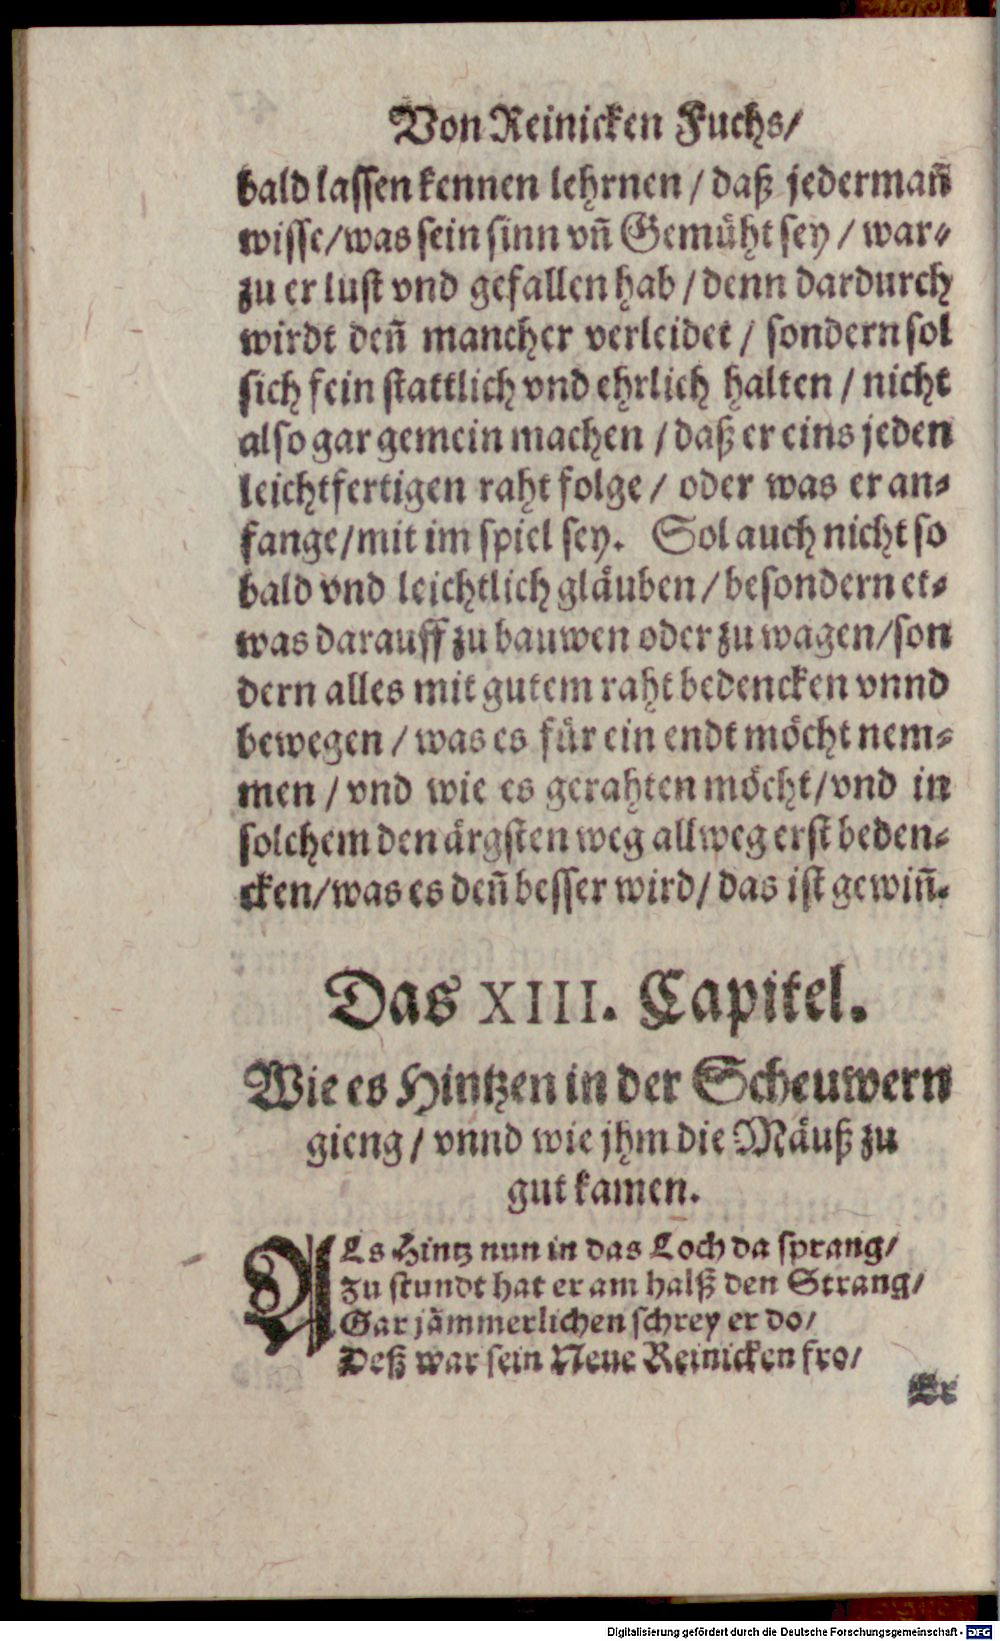 Von Reinicken Fuchs/
bald lassen kennen lehrnen / daß jedermañ
wisse/was sein sinn vñ Gemüht sey / war-
zu er lust vnd gefallen hab / denn dardurch
wirdt deñ mancher verleidet / sondern sol
sich fein stattlich vnd ehrlich halten / nicht
also gar gemein machen / daß er eins jeden
leichtfertigen raht folge / oder was er an-
fange/mit im spiel sey. Sol auch nicht so
bald vnd leichtlich gläuben / besondern et-
was darauff zu bauwen oder zu wagen/son
dern alles mit gutem raht bedencken vnnd
bewegen / was es für ein endt möcht nem-
men / vnd wie es gerahten möcht/vnd in
solchem den ärgsten weg allweg erst beden-
cken/was es deñ besser wird/ das ist gewiñ.
Das XIII. Capitel.
Wie es Hintzen in der Scheuwern
gieng / vnnd wie jhm die Mäuß zu
gut kamen.
ALs Hintz nun in das Loch da sprang/
Zu stundt hat er am halß den Strang/
Gar jämmerlichen schrey er do/
Deß war sein Neue Reinicken fro/
Er
Digitalisierung gefördert durch die Deutsche Forschungsgemeinschaft - DFG